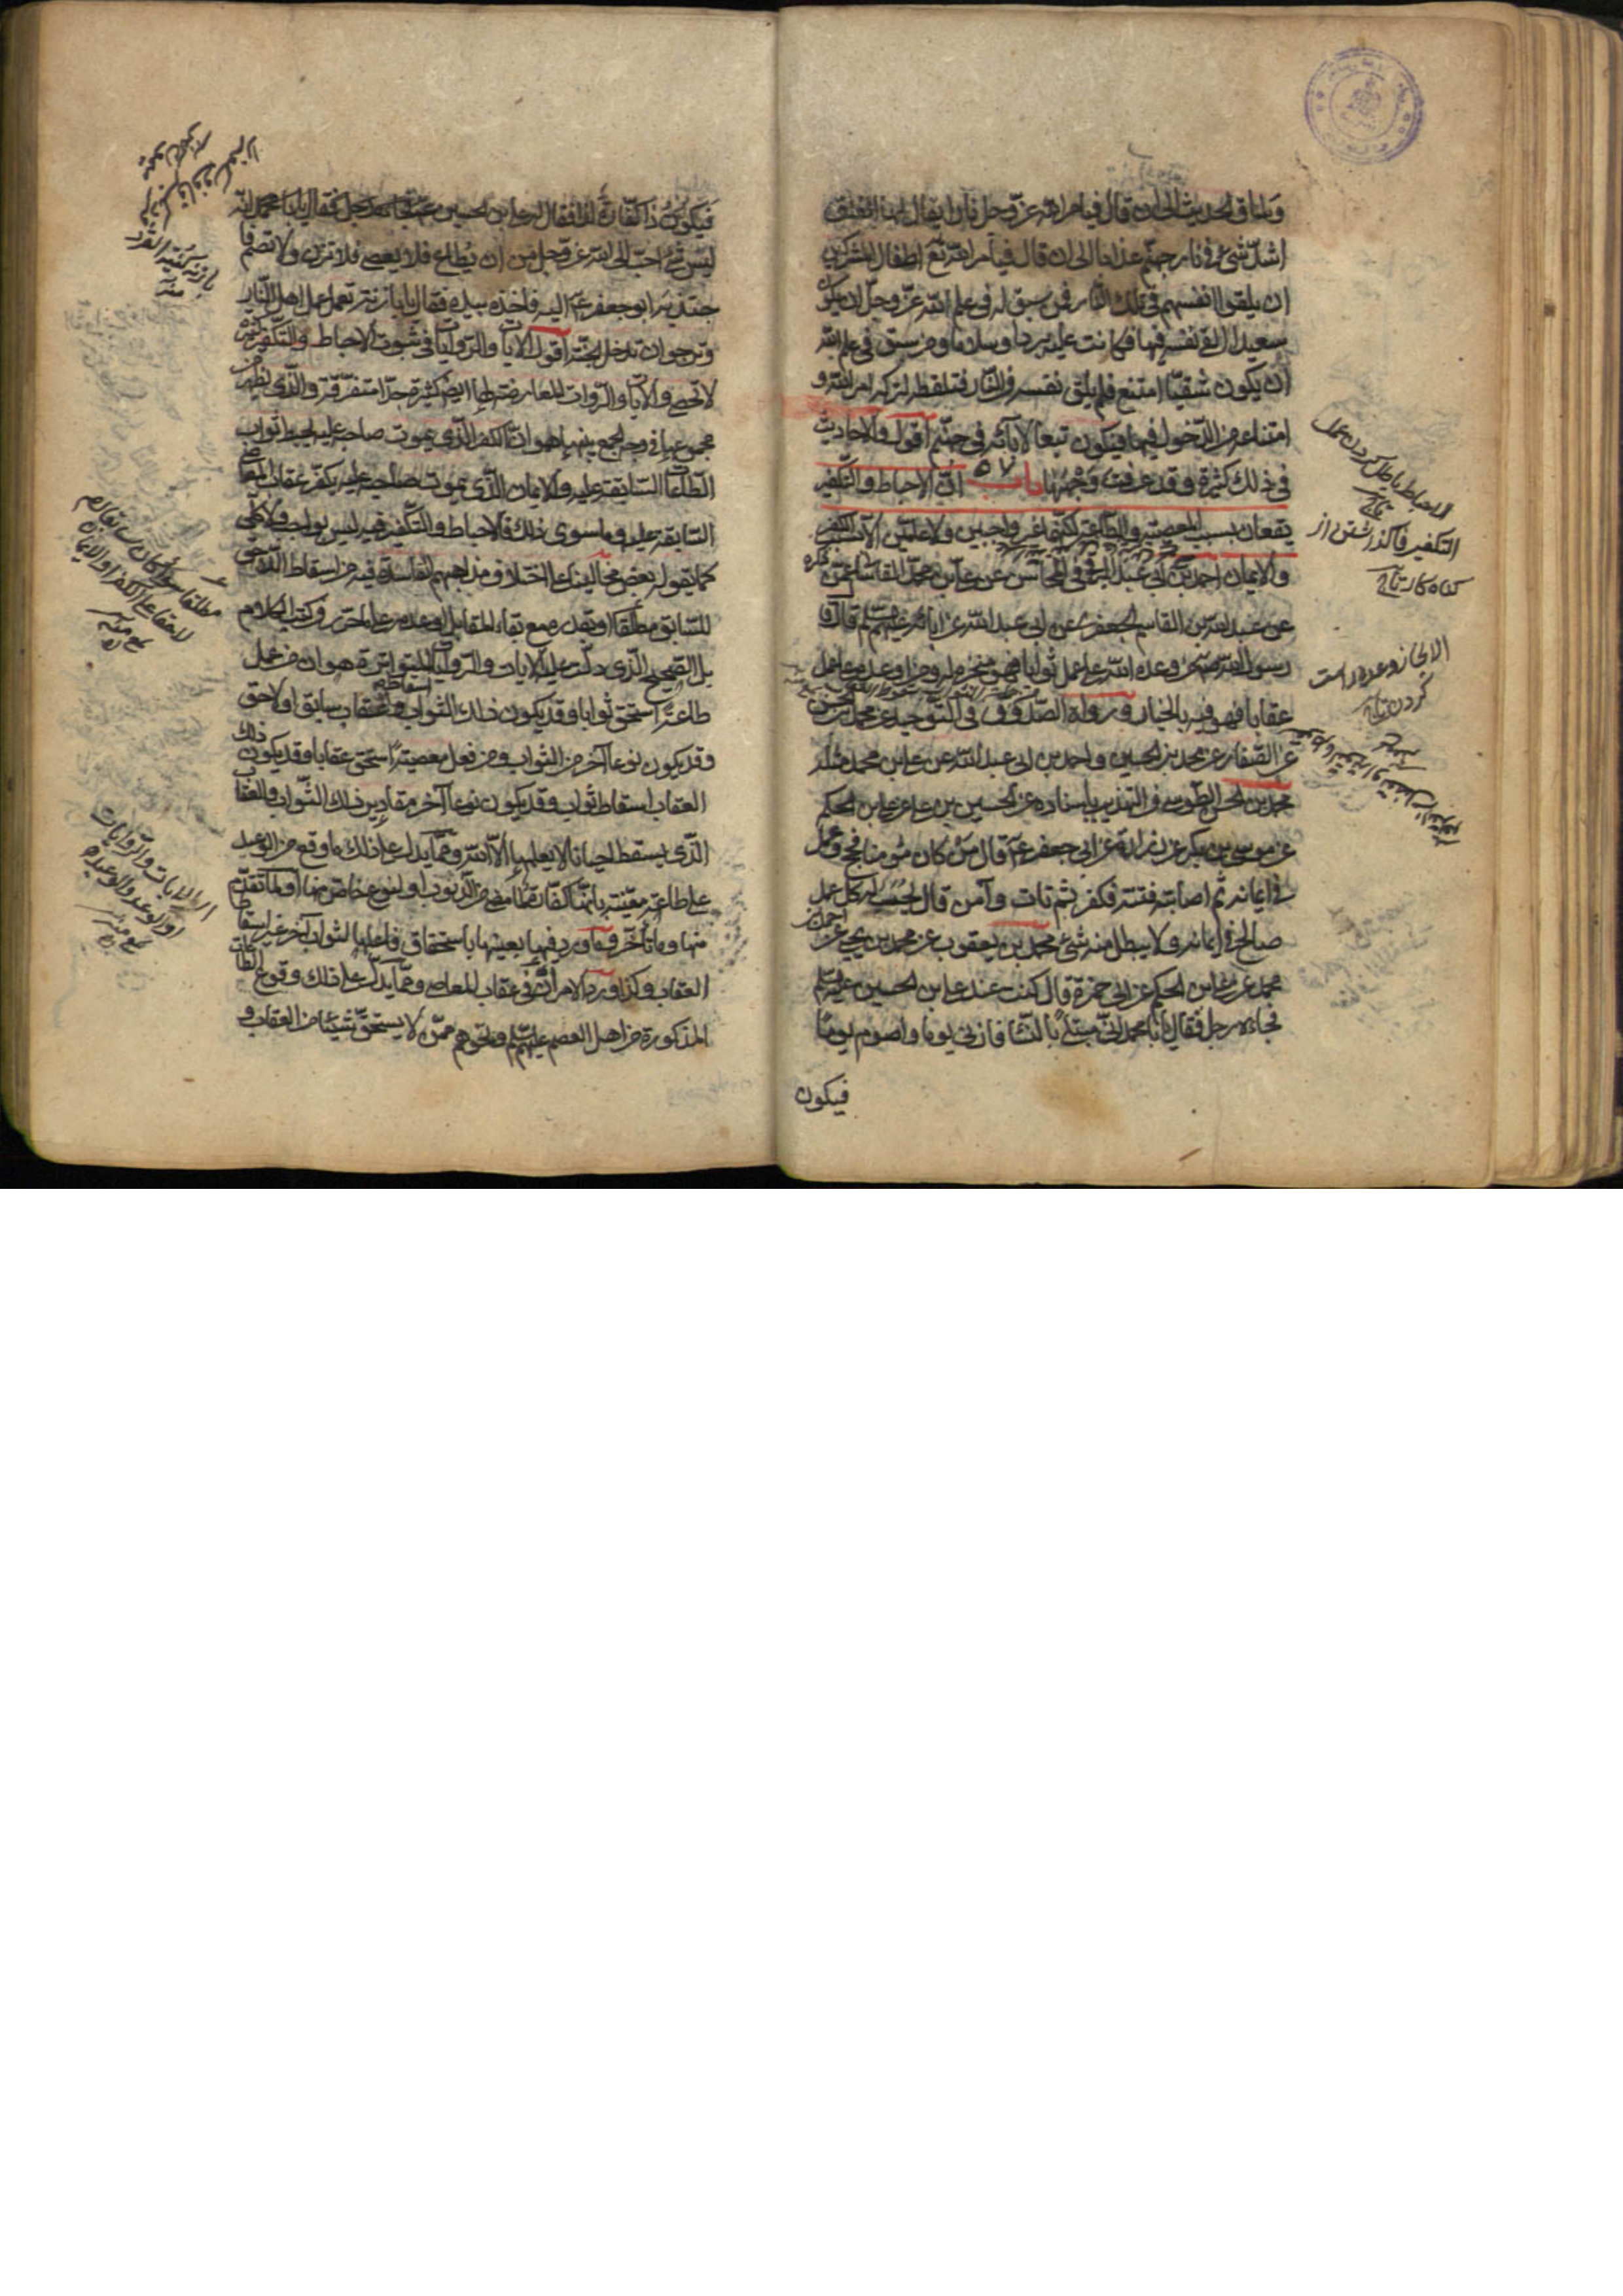 وساق الحديث الى ان قال فيامر الله عز وجل نارا يقال لها الفلق
اشد شئ في نار جهنم عذابا الى ان قال فيأمر الله تع اطفال المشركين
ان يلقوا انفسهم في تلك النار فمن سبق له في علم الله عز وجل ان يكون
سعيدا القى نفسه فيها فكانت عليه بردا وسلاما ومن سبق في علم الله
أن يكون شقيا امتنع فلم يلق نفسه في النار فتلقطه لتركه امر الله و
امتناعه من الدخول فيها فيكون تبعا لآبائه في جهنم أقول والاحاديث
في ذلك كثيرة وقد عرفت وجهها باب ٥٧ ان الاحباط والتكفير
يقعان بسبب المعصية والطاعة لكنهما غير واجبين ولا عامين الا الكفر
والايمان احمد بن ابي عبد الله البرقي في المحاسن عن علي بن محمد القاساني عمن ذكره
عن عبد الله بن القاسم الجعفري عن ابي عبد الله عن آبائه عليهم السلم قال قال
رسول الله ص من وعده الله على عمل ثوابا فهو منجزه له ومن اوعده على عمل
عقابا فهو فيه بالخيار ورواه الصدوق في التوحيد عن محمد بن الحسن
عن الصفار عن محمد بن الحسين واحمد بن ابي عبد الله عن علي بن محمد مثله
محمد بن الحسن الطوسي في التهذيب باسناده عن الحسين بن علي عن علي بن الحكم
عن موسى بن بكر عن زرارة عن ابي جعفر ع قال من كان مؤمنا فحج وعمل
في ايمانه ثم اصابته فتنة فكفر ثم تاب وآمن قال يحسب له كل عمل
صالح في ايمانه ولا يبطل منه شئ محمد بن يعقوب عن محمد بن يحيى عن احمد بن
محمد عن علي بن الحكم عن ابي حمزة قال كنت عند علي بن الحسين عليه السلم
فجاءه رجل فقال يا با محمد اني مبتلى بالنساء فازني يوما واصوم يوما
فيكون
الاحباط باطل كردن عمل
تاج
التكفير فا گذراشتن از
گناه كار تاج
الانجاز وعده راست
كردن تاج
فيكون ذا كفارة لذا فقال له علي بن الحسين ع
ليس شئ احب الى الله عز وجل من ان يطاع فلا يعصى فلا تزن ولا تصم فا
جتذبه ابو جعفر ع اليه فاخذه بيده فقال يا با زنة تعمل عمل اهل النار
وترجو ان تدخل الجنة أقول الآيات والروايات في ثبوت الاحباط والتكفير كثيرة
لا تحصى والآيات والروايات المعارضة لها ايضا كثيرة جدا متفرقة والذي يظهر من
مجموعها في وجه الجمع بينها هو ان الكفر الذي يموت صاحبه عليه يحبط ثواب
الطاعات السابقة عليه والايمان الذي يموت صاحبه عليه يكفر عقاب المعاصي
السابقة عليه وما سوى ذلك فالاحباط والتكفير فيه ليس بواجب ولا كلي
كما يقوله بعض مخالفينا على اختلاف مذاهبهم الفاسدة فيه من اسقاط اللاحق
للسابق مطلقا او بقدره مع بقاء المقابل او عدمه على ما حرر في كتب الكلام
بل الصحيح الذي دلت عليه الآيات والروايات المتواترة هو ان من عمل
طاعة استحق ثوابا وقد يكون ذلك الثواب اسقاط عقاب سابق او لاحق
وقد يكون نوعا آخر من الثواب ومن فعل معصية استحق عقابا وقد يكون ذلك
العقاب اسقاط ثواب وقد يكون نوعا آخر ومقادير ذلك الثواب والعقاب
الذي يسقط احيانا لا يعلمها الا الله ومما يدل على ذلك ما وقع من الوعد
على طاعة معينة بانها كفارة لما مضى من الذنوب او لنوع خاص منها او لما تقدم
منها وما تأخر وما ورد فيها بعينها باستحقاق فاعلها لثواب آخر غير اسقاط
العقاب وكذا ورد الامران في عقاب المعاصي ومما يدل على ذلك وقوع الطاعات
المذكورة من اهل العصمة عليهم السلم ونحوهم ممن لا يستحق شيئا من العقاب و
مطلقا سواء كان سابقا ام
اي الايات والروايات
او الوعد والوعيد